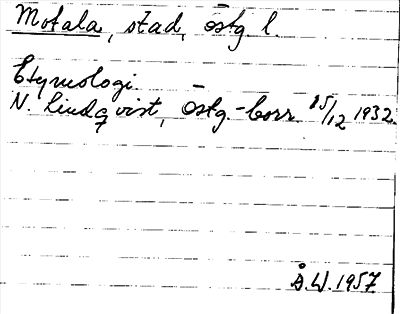 Motala, stad, östg l.
Etymologi.
N. Lindqvist, Östg.-Corr. 15/12 1932.
Å.W. 1957